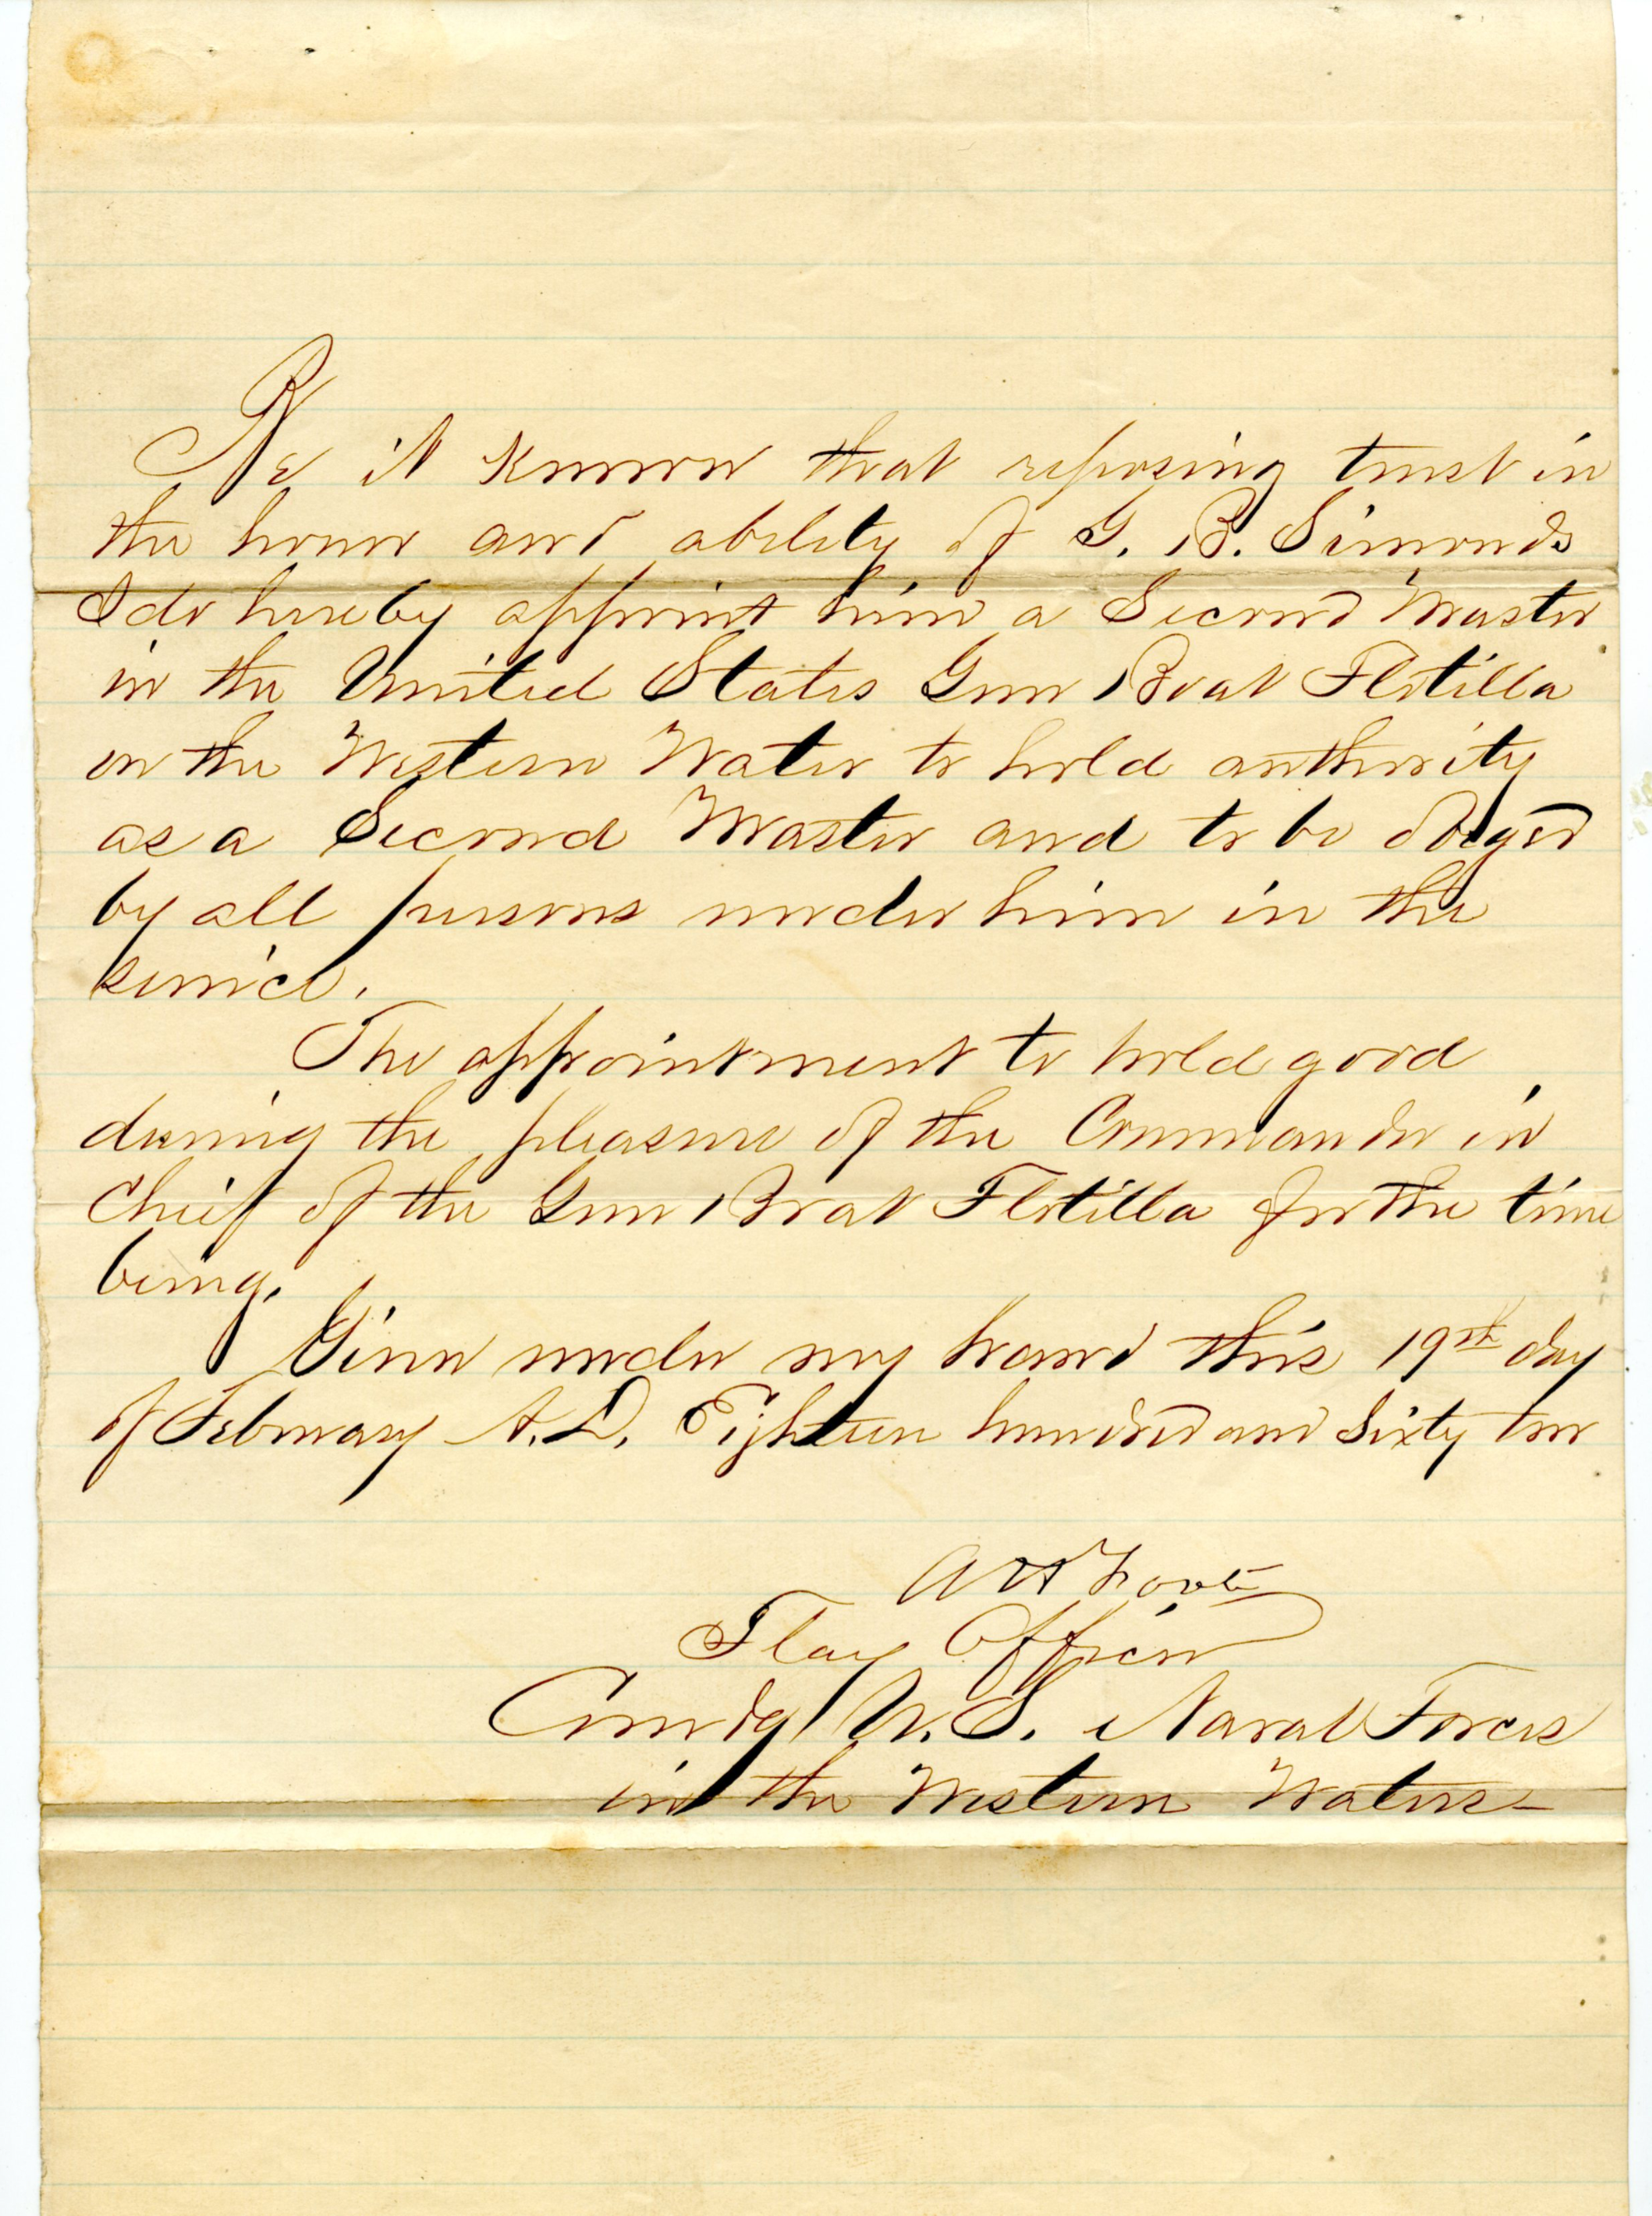 Be it known that reposing trust in
the honor and ability of G. B. Simonds
I do hereby appoint him a Second Master
in the United States Gun Boat Flotilla
on the Western Water to hold authority
as a Second Master and to be obeyed
by all persons under him in the
service.
The appointment to hold good
during the pleasure of the Commander in
Chief of the Gun Boat Flotilla for the time
being.
Given under my hand this 19th day
of February A.D. Eighteen hundred and Sixty two
A H Foote
Flag Officer
Comdg U.S. Naval Forces
in the Western Waters